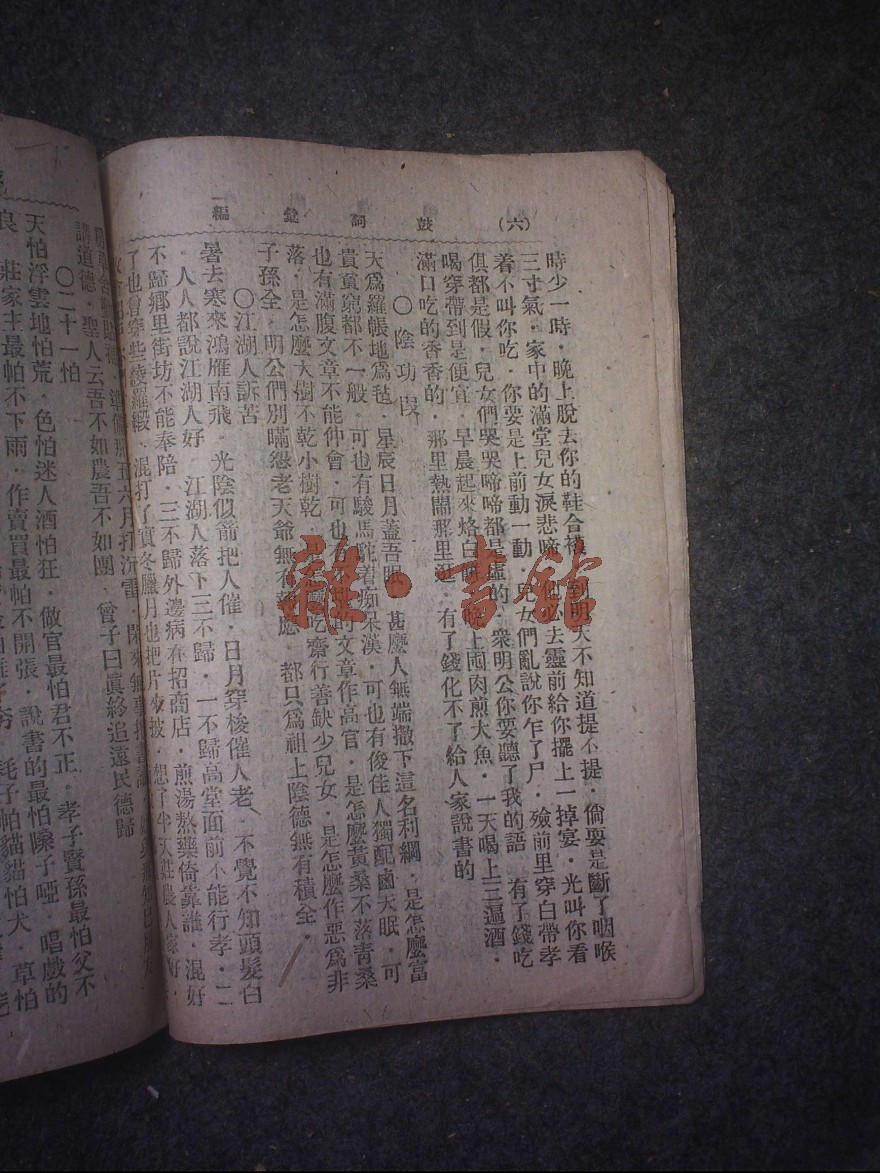 (六) 鼓詞彙編一
時少一時．晚上脫去你的鞋合襪 到明天不知道提不提．倘要是斷了咽喉
三寸氣．家中的滿堂兒女淚悲啼 他必去靈前給你擺上一掉宴．光叫你看
着不叫你吃．你要是上前動一動．兒女們亂說你乍了尸．殮前里穿白帶孝
俱都是假．兒女們哭哭啼啼都是虛的．衆明公你要聽了我的語 有了錢吃
喝穿帶到是便宜．早晨起來烙白 晚上囤肉煎大魚．一天喝上三遍酒．
滿口吃的香香的．那里熱鬧那里逛．有了錢化不了給人家說書的
〇陰功段
天爲羅帳地爲毡．星辰日月蓋吾眠 甚麼人無端撒下這名利網．是怎麼富
貴貧窮都不一般．可也有駿馬駝着痴呆漢．可也有俊佳人獨配鹵夫眠．可
也有滿腹文章不能仲會．可也有 的文章作高官．是怎麼黃桑不落靑桑
落．是怎麼大樹不乾小樹乾． 吃齋行善缺少兒女．是怎麼作惡爲非
子孫全．明公們別瞞怨老天爺無 應．都只爲祖上陰德無有積全．
〇江湖人訴苦
暑去寒來鴻雁南飛．光陰似箭把人催．日月穿梭催人老．不覺不知頭髮白
．人人都說江湖人好．江湖人落下三不歸．一不歸高堂面前不能行孝．二
不歸鄉里街坊不能奉陪．三不歸外邊病在招商店．煎湯熬藥倚靠誰．混好
了也會穿些綾羅緞．混打了 冬臘月也把片 披．想了半天莊農人家好．
五六月打沉雷．閑來無事
講道德．聖人云吾不如農吾不如圃．曾子曰眞終追遠民德歸
〇二十一怕
天怕浮雲地怕荒．色怕迷人酒怕狂．做官最怕君不正．孝子賢孫最怕父不
良 莊家主最怕不下雨．作賣買最怕不開張．說書的最怕嗓子啞．唱戲的
耗子怕貓貓怕犬．草怕